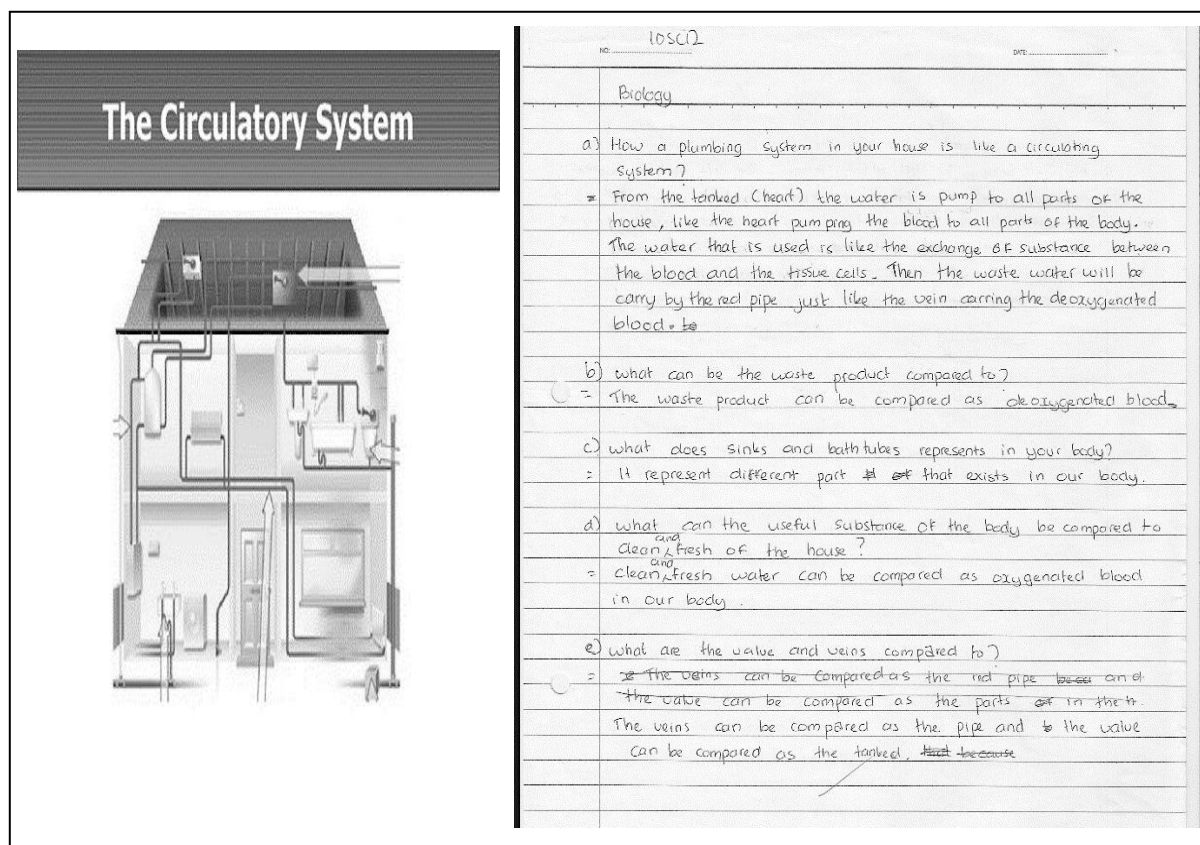 The Circulatory System
NO: 10SCI2
DATE:
Biology
a) How a plumbing system in your house is like a circulating
system?
= From the tanked (heart) the water is pump to all parts of the
house, like the heart pumping the blood to all parts of the body.
The water that is used is like the exchange of substance between
the blood and the tissue cells. Then the waste water will be
carry by the red pipe just like the vein carring the deoxygenated
blood. to
b) what can be the waste product compared to?
= The waste product can be compared as deoxygenated blood.
c) what does sinks and bath tubes represents in your body?
= It represent different part of that exists in our body.
d) what can the useful substance of the body be compared to
clean and fresh of the house?
= clean and fresh water can be compared as oxygenated blood
in our body.
e) what are the value and veins compared to?
= The veins can be compared as the red pipe and
the value can be compared as the parts of in the
The veins can be compared as the pipe and the value
can be compared as the tanked. that because